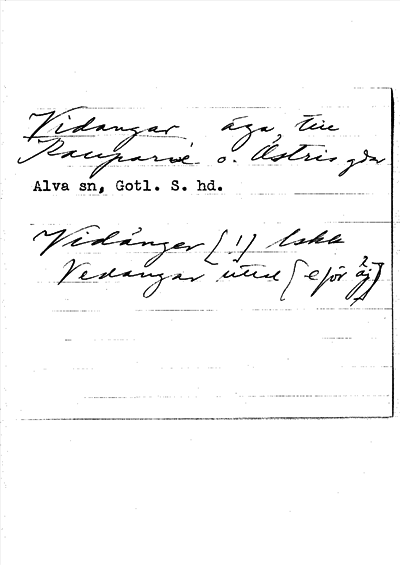 Vidangar äga, till
Rauparve o. Östris gdar
Alva sn, Gotl. S. hd.
Vidånger [!] Lskk
Vedangar uttal [ejör äj]